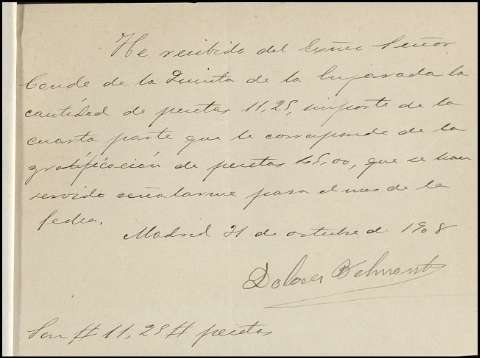 He recibido del Excmo Señor
Conde de la Quinta de la Enjarada la
cantidad de pesetas 11,25, importe de la
cuarta parte que le corresponde de la
gratificación de pesetas 45,00, que se han
servido señalarme para el mes de la
fecha.
Madrid 31 de octubre de 1908
Dolores
Son # 11,25 # pesetas